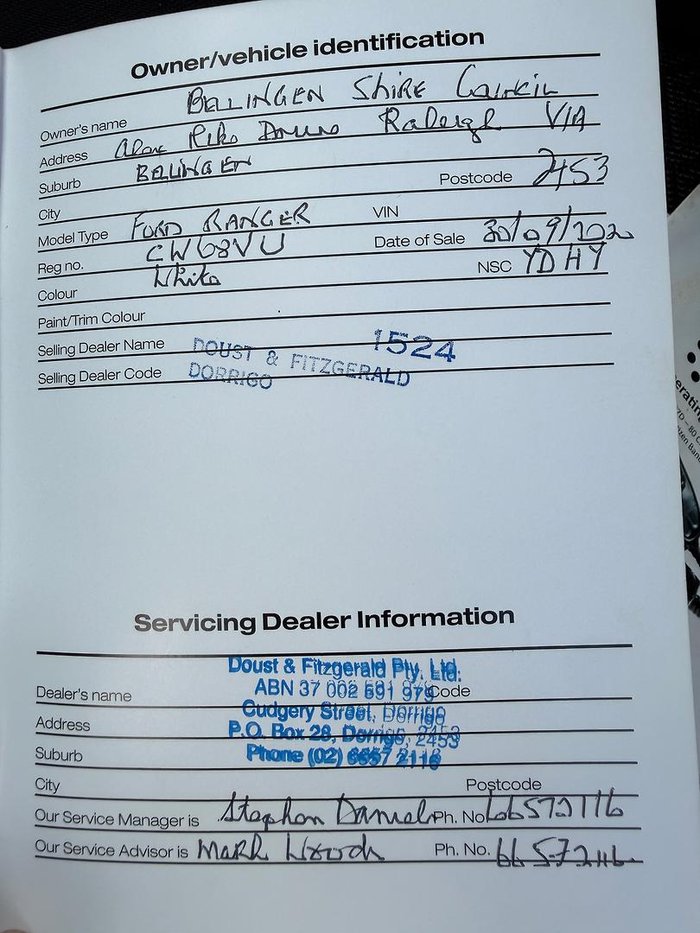 Owner/vehicle identification
Owner's name BELLINGEN SHIRE Council
Address Raleigh VIA
Suburb BELLINGEN
City Postcode 2453
Model Type FORD RANGER VIN
Reg no. CW68VU Date of Sale 30/09/2020
Colour White NSC YDHY
Paint/Trim Colour
Selling Dealer Name DOUST & FITZGERALD 1524
Selling Dealer Code DORRIGO
Servicing Dealer Information
Doust & Fitzgerald Pty. Ltd.
Dealer's name ABN 37 002 691 979 Code
Address Cudgery Street, Dorrigo
P.O. Box 28, Dorrigo, 2453
Suburb Phone (02) 6657 2116
City Postcode
Our Service Manager is Stephen Daniel Ph. No. 66572116
Our Service Advisor is MARK Wood Ph. No. 66572116
erating